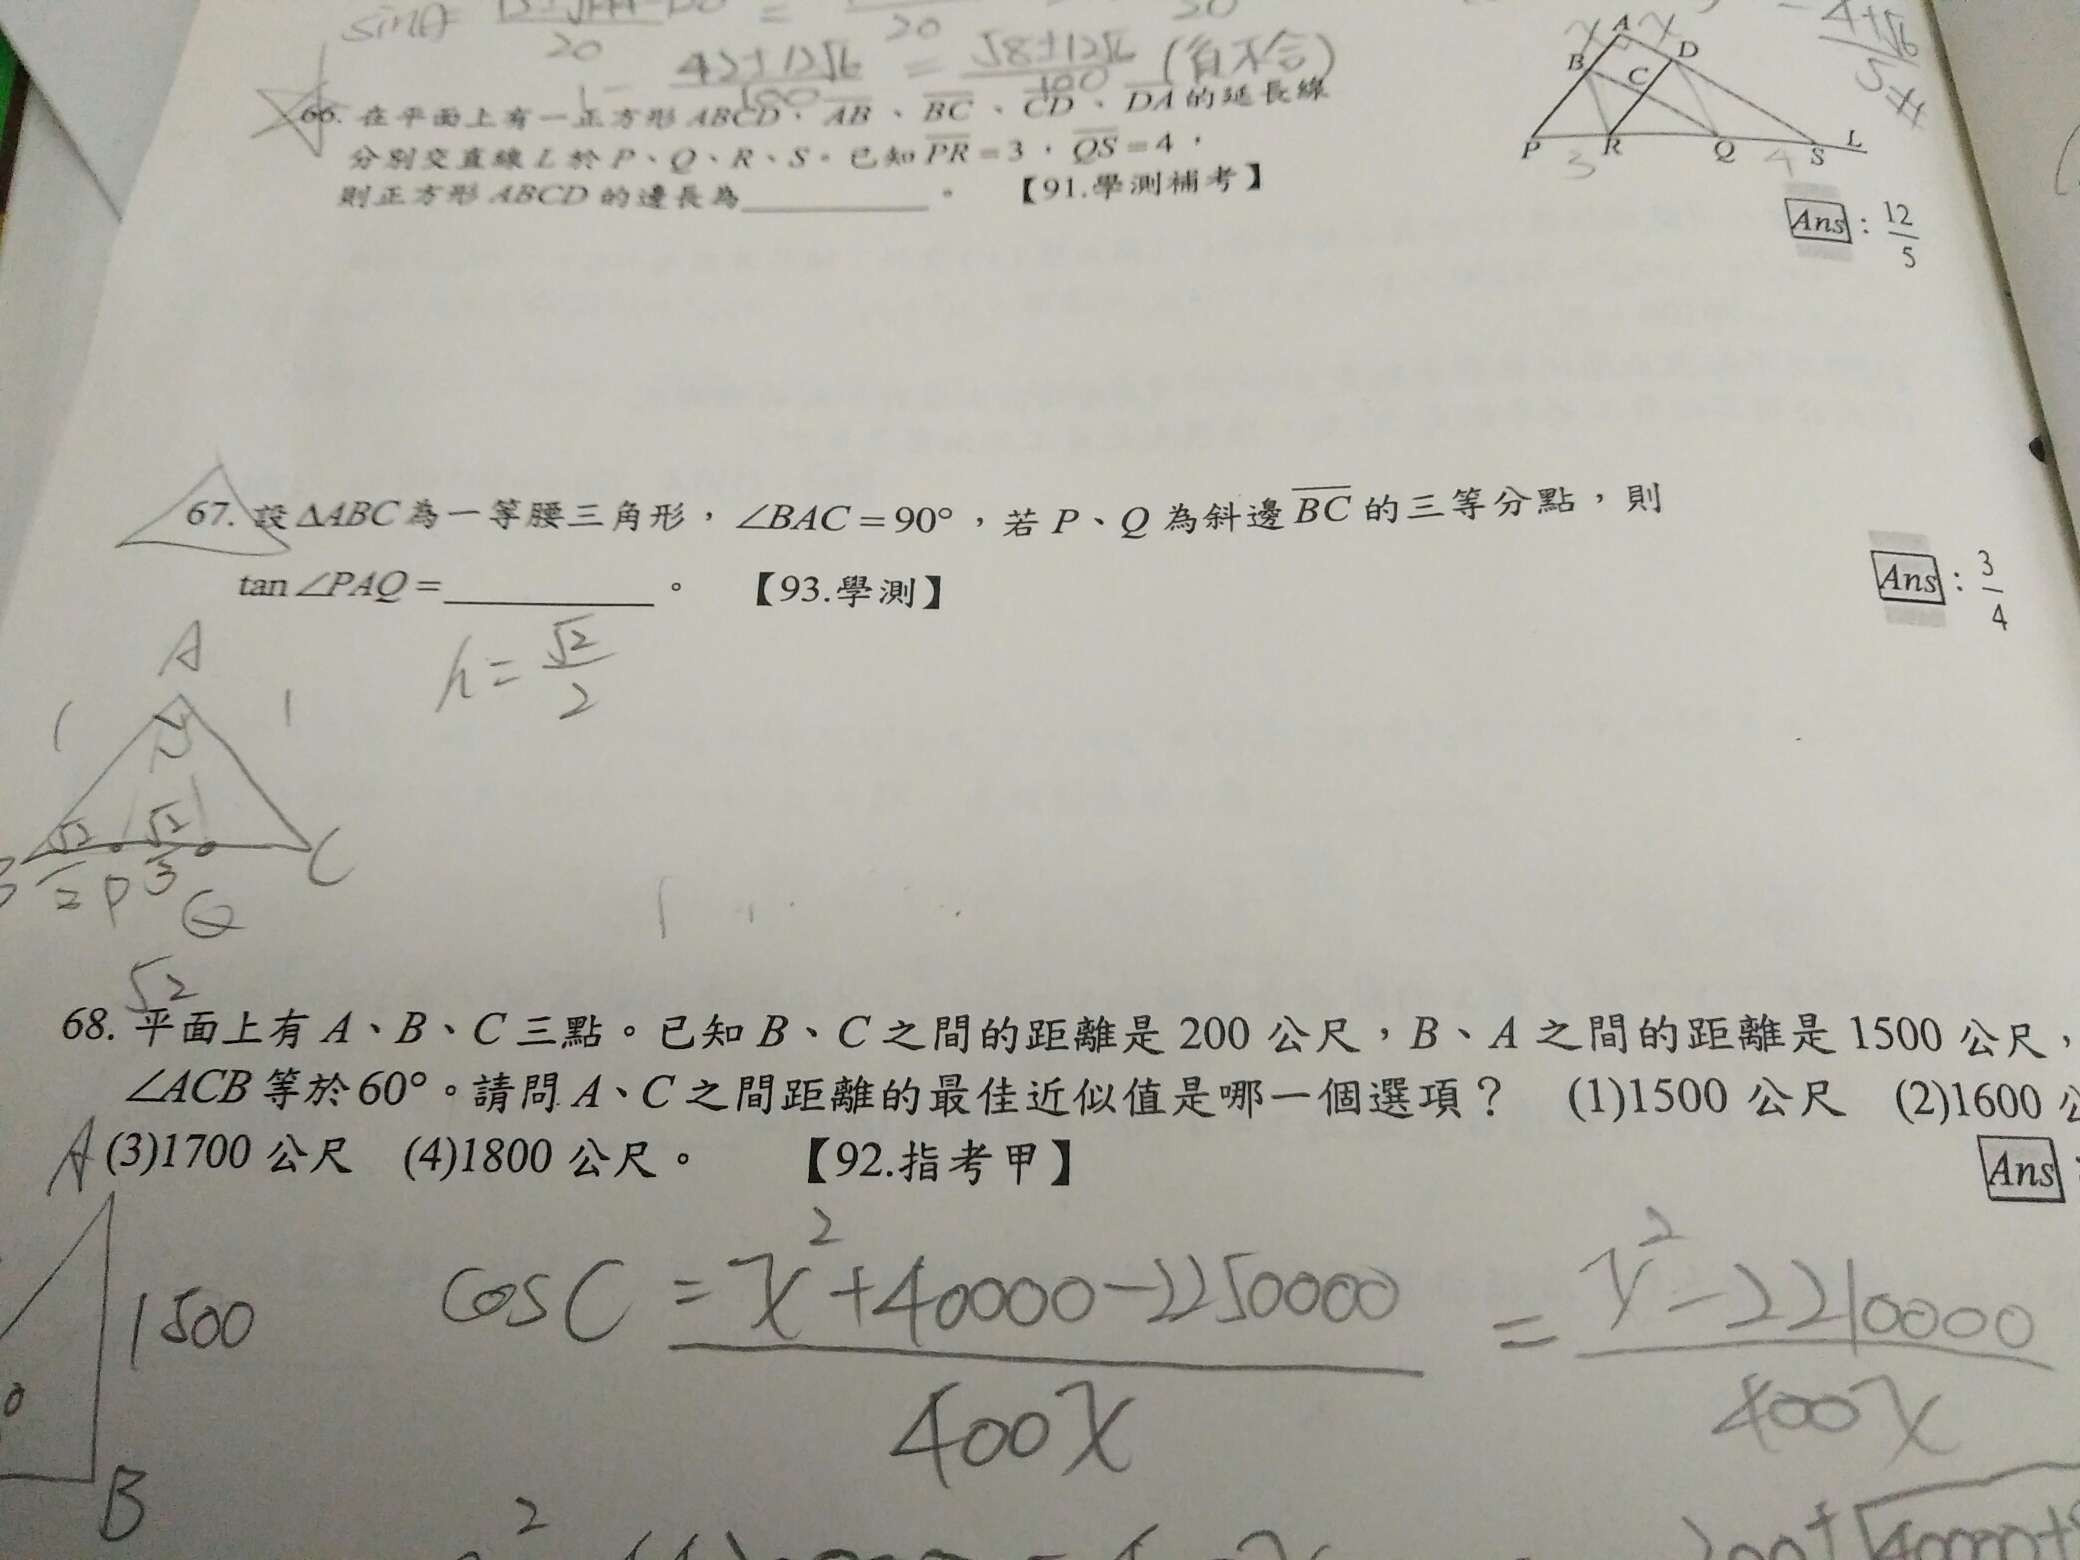 sinθ=
20
=
20
20
42±12√6
=
58±12√6
100
(負不合)
66. 在平面上有一正方形ABCD,AB、BC、CD、DA的延長線
分別交直線L於P、Q、R、S。已知PR=3,QS=4,
則正方形ABCD的邊長為________。 【91.學測補考】
x A x
B C D
P R Q S L
3 4
Ans : 12/5
67. 設ΔABC為一等腰三角形,∠BAC=90°,若P、Q為斜邊BC的三等分點,則
tan∠PAQ=________。 【93.學測】
Ans : 3/4
h=√2/2
A
1 1
√2/2 √2/3
P Q C
√2
68. 平面上有A、B、C三點。已知B、C之間的距離是200公尺,B、A之間的距離是1500公尺,
∠ACB等於60°。請問A、C之間距離的最佳近似值是哪一個選項? (1)1500公尺 (2)1600
(3)1700公尺 (4)1800公尺。 【92.指考甲】
Ans
A
1500
B
cosC = x²+40000-2250000 / 400x = x²-2210000 / 400x